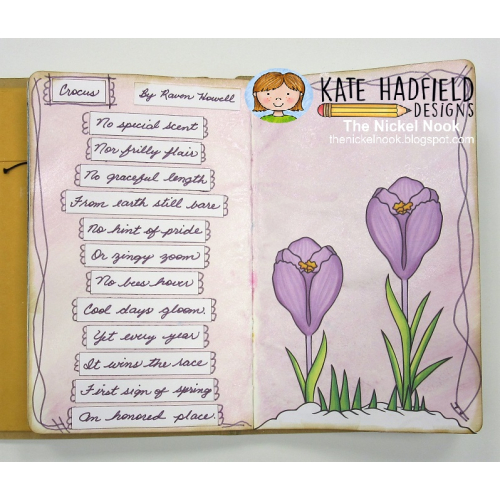 Crocus
By Raven Howell
No special scent
Nor frilly flair
No graceful length
From earth still bare
No hint of pride
Or zingy zoom
No bees hover
Cool days gloom.
Yet every year
It wins the race
First sign of spring
An honored place.
KATE HADFIELD
DESIGNS
The Nickel Nook
thenickelnook.blogspot.com